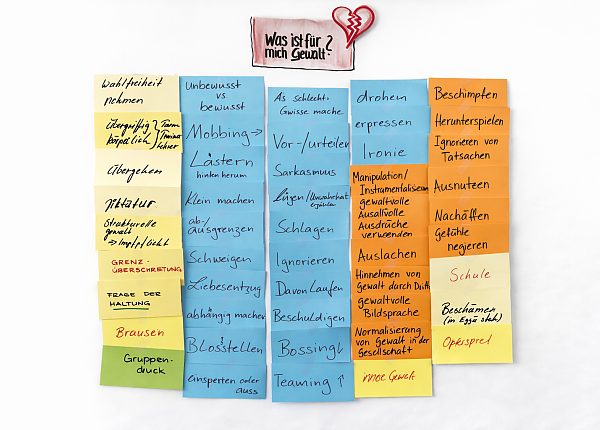 Was ist für
mich Gewalt?
Wahlfreiheit
nehmen
übergriffig
körperlich
Lehrer
Übergehen
Diktatur
Strukturelle
gewalt
→ Impfpflicht
GRENZ-
ÜBERSCHREITUNG
FRAGE DER
HALTUNG
Brausen
Gruppen-
druck
Unbewusst
vs
bewusst
Mobbing →
Lästern
hinten herum
Klein machen
ab-/
ausgrenzen
Schweigen
Liebesentzug
abhängig machen
Blosstellen
einsperren oder
auss
As schlecht-
Gwisse mache
Vor-/urteilen
Sarkasmus
Lügen/Unwahrheit
erzählen
Schlagen
Ignorieren
Davon Laufen
Beschuldigen
Bossing
Teaming ↑
drohen
erpressen
Ironie
Manipulation/
Instrumentalisierung
gewaltvolle
Ausdrücke
verwenden
Auslachen
Hinnehmen von
Gewalt durch Dritte
gewaltvolle
Bildsprache
Normalisierung
von Gewalt in der
Gesellschaft
inne Gewalt
Beschimpfen
Herunterspielen
Ignorieren von
Tatsachen
Ausnutzen
Nachäffen
Gefühle
negieren
Schule
Beschämen
(in Eggä stah)